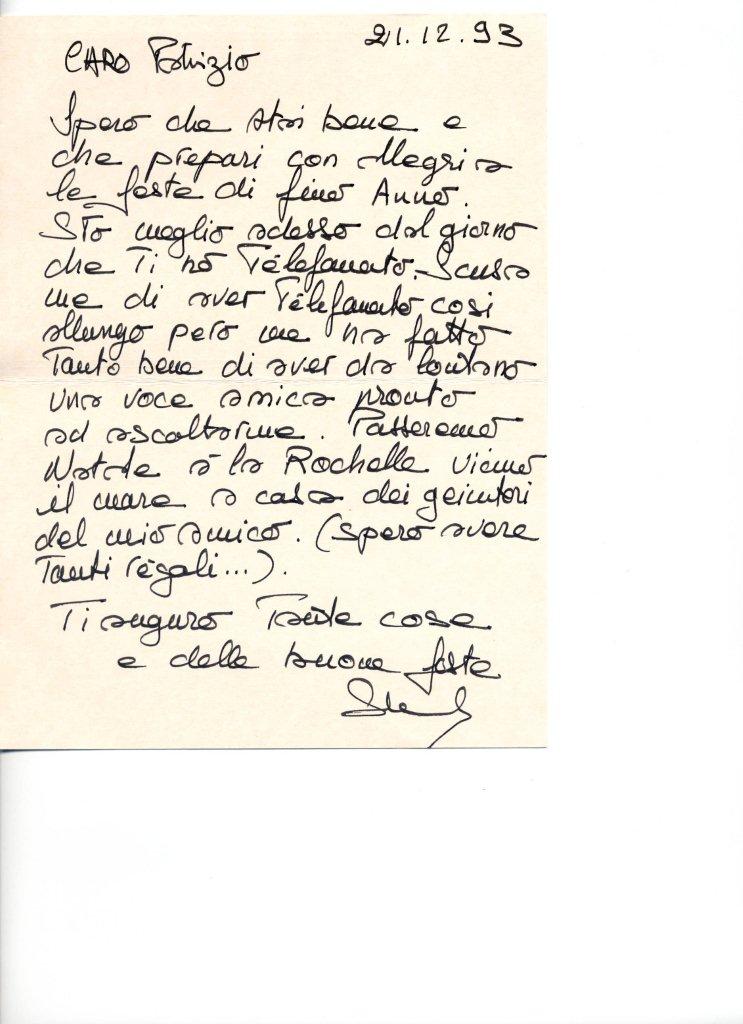 21.12.93
CARO Patrizio
Spero che stai bene e
che prepari con allegria
le feste di fino Anno.
STo meglio adesso dal giorno
che Ti ho Télefanato. Scusa
me di aver Télefanato cosi
allungo pero me ha fatto
Tanto bene di aver da lontano
una voce amica pronto
ad ascoltarme. Passeremo
Natale a la Rochelle vicino
il mare a casa dei genitori
del mio amico. (spero avere
Tanti régali...).
Ti auguro Tante cose
e delle buone feste